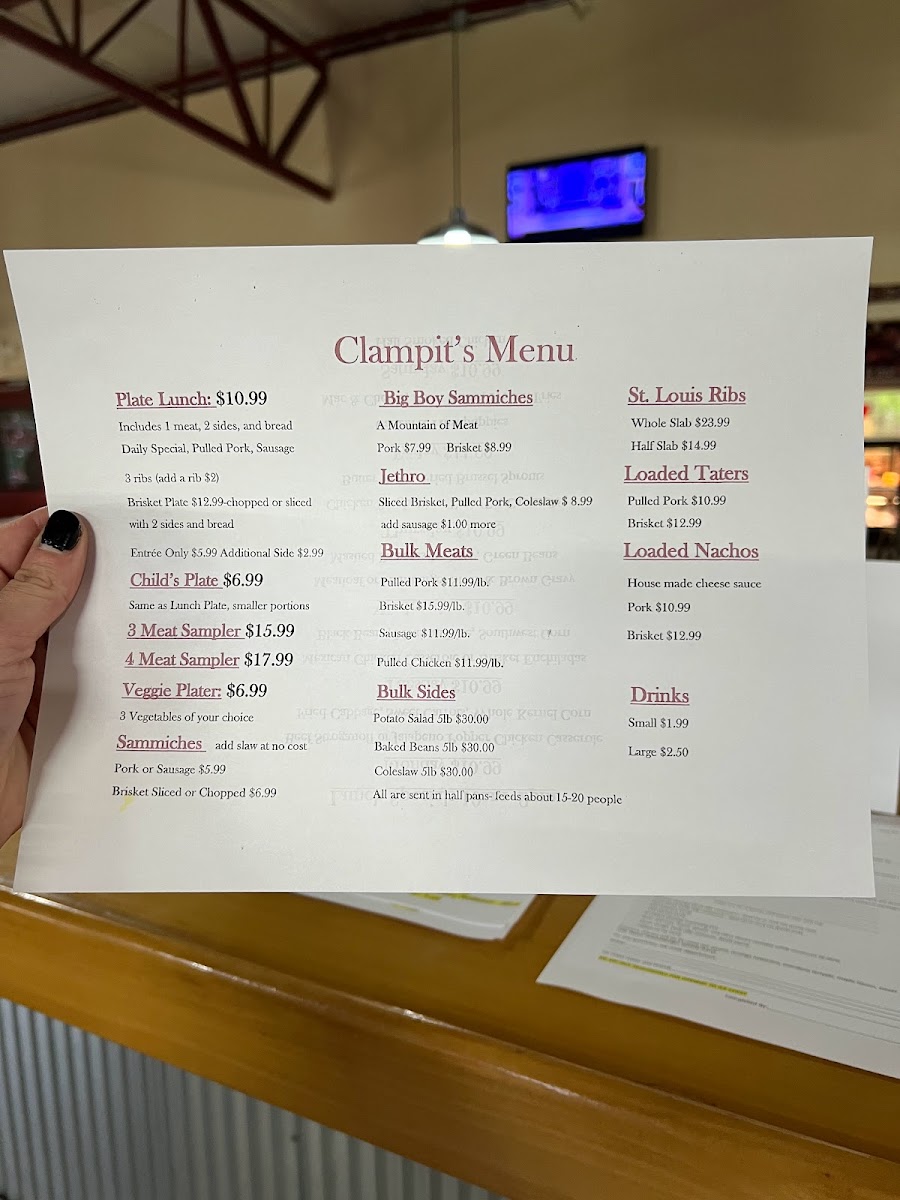 Clampit's Menu
Plate Lunch: $10.99
Includes 1 meat, 2 sides, and bread
Daily Special, Pulled Pork, Sausage
3 ribs (add a rib $2)
Brisket Plate $12.99-chopped or sliced
with 2 sides and bread
Entrée Only $5.99 Additional Side $2.99
Child's Plate $6.99
Same as Lunch Plate, smaller portions
3 Meat Sampler $15.99
4 Meat Sampler $17.99
Veggie Plater: $6.99
3 Vegetables of your choice
Sammiches add slaw at no cost
Pork or Sausage $5.99
Brisket Sliced or Chopped $6.99
Big Boy Sammiches
A Mountain of Meat
Pork $7.99 Brisket $8.99
Jethro
Sliced Brisket, Pulled Pork, Coleslaw $ 8.99
add sausage $1.00 more
Bulk Meats
Pulled Pork $11.99/lb.
Brisket $15.99/lb.
Sausage $11.99/lb.
Pulled Chicken $11.99/lb.
Bulk Sides
Potato Salad 5lb $30.00
Baked Beans 5lb $30.00
Coleslaw 5lb $30.00
All are sent in half pans- feeds about 15-20 people
St. Louis Ribs
Whole Slab $23.99
Half Slab $14.99
Loaded Taters
Pulled Pork $10.99
Brisket $12.99
Loaded Nachos
House made cheese sauce
Pork $10.99
Brisket $12.99
Drinks
Small $1.99
Large $2.50